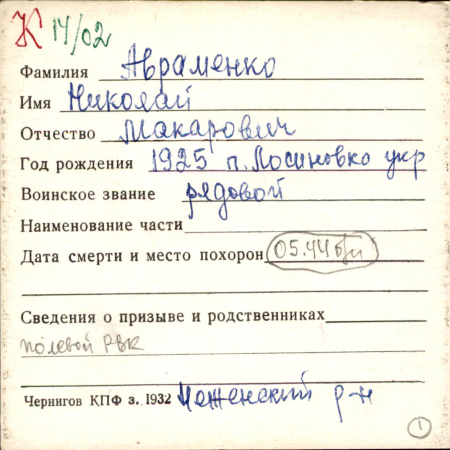 К 14/02
Фамилия Авраменко
Имя Николай
Отчество Макарович
Год рождения 1925 п. Лосиновко укр
Воинское звание рядовой
Наименование части
Дата смерти и место похорон 05.44 б/и
Сведения о призыве и родственниках
полевой РВК
Чернигов КПФ з. 1932 Неженский р-н
1